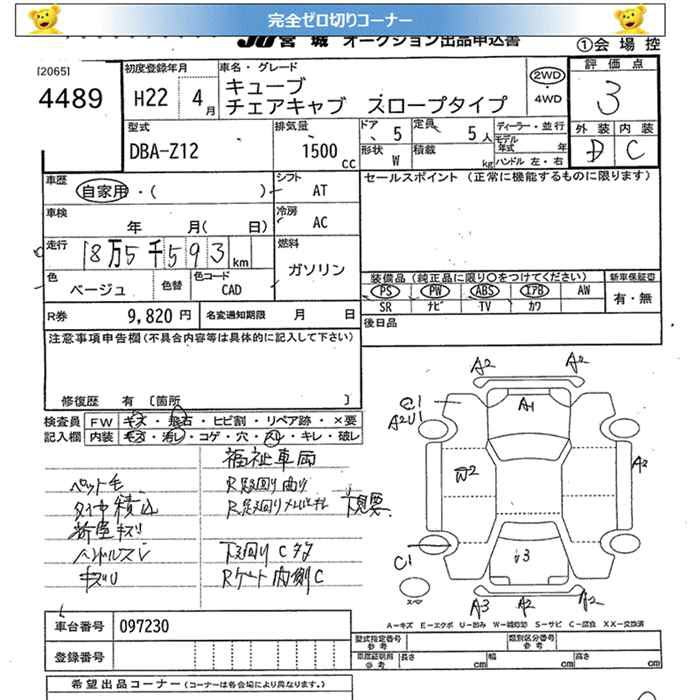 完全ゼロ切りコーナー
JU宮城 オークション出品申込書
①会場控
[2065]
4489
初度登録年月
H22 4月
車名・グレード
キューブ
チェアキャブ スロープタイプ
2WD
4WD
評価点
3
外装 内装
D C
型式
DBA-Z12
排気量
1500 cc
ドア 5
定員 5人
形状 W
積載 kg
ディーラー・並行
モデル年式 年
ハンドル 左・右
車歴
自家用・( )
シフト AT
車検
年 月( 日)
冷房 AC
走行
18万5千593km
燃料
ガソリン
色
ベージュ
色替
色コード
CAD
R券 9,820円
名変通知期限 月 日
セールスポイント (正常に機能するものに限ります)
装備品(純正品に限り○をつけてください)
新車保証書
PS PW ABS エアB AW
SR ナビ TV カワ
有・無
後日品
注意事項申告欄(不具合内容等は具体的に記入して下さい)
修復歴 有 [箇所 ]
検査員記入欄
FW キズ・飛石・ヒビ割・リペア跡・×要
内装 キズ・汚レ・コゲ・穴・スレ・キレ・破レ
福祉車両
ペット毛
タイヤ積込
ハンドルスレ
キズU
下廻りCタタ
Rゲート内側C
A2
A2
A1
C1
A2U1
W2
A2
C1
A3
A2
A2
スペア
A-キズ E-エクボ U-凹み W-補修跡 S-サビ C-腐食 XX-交換済
車台番号 097230
登録番号
型式指定番号 参考
類別区分番号 参考
長さ cm
幅 cm
高さ cm
希望出品コーナー (コーナーは各会場により異なります。)